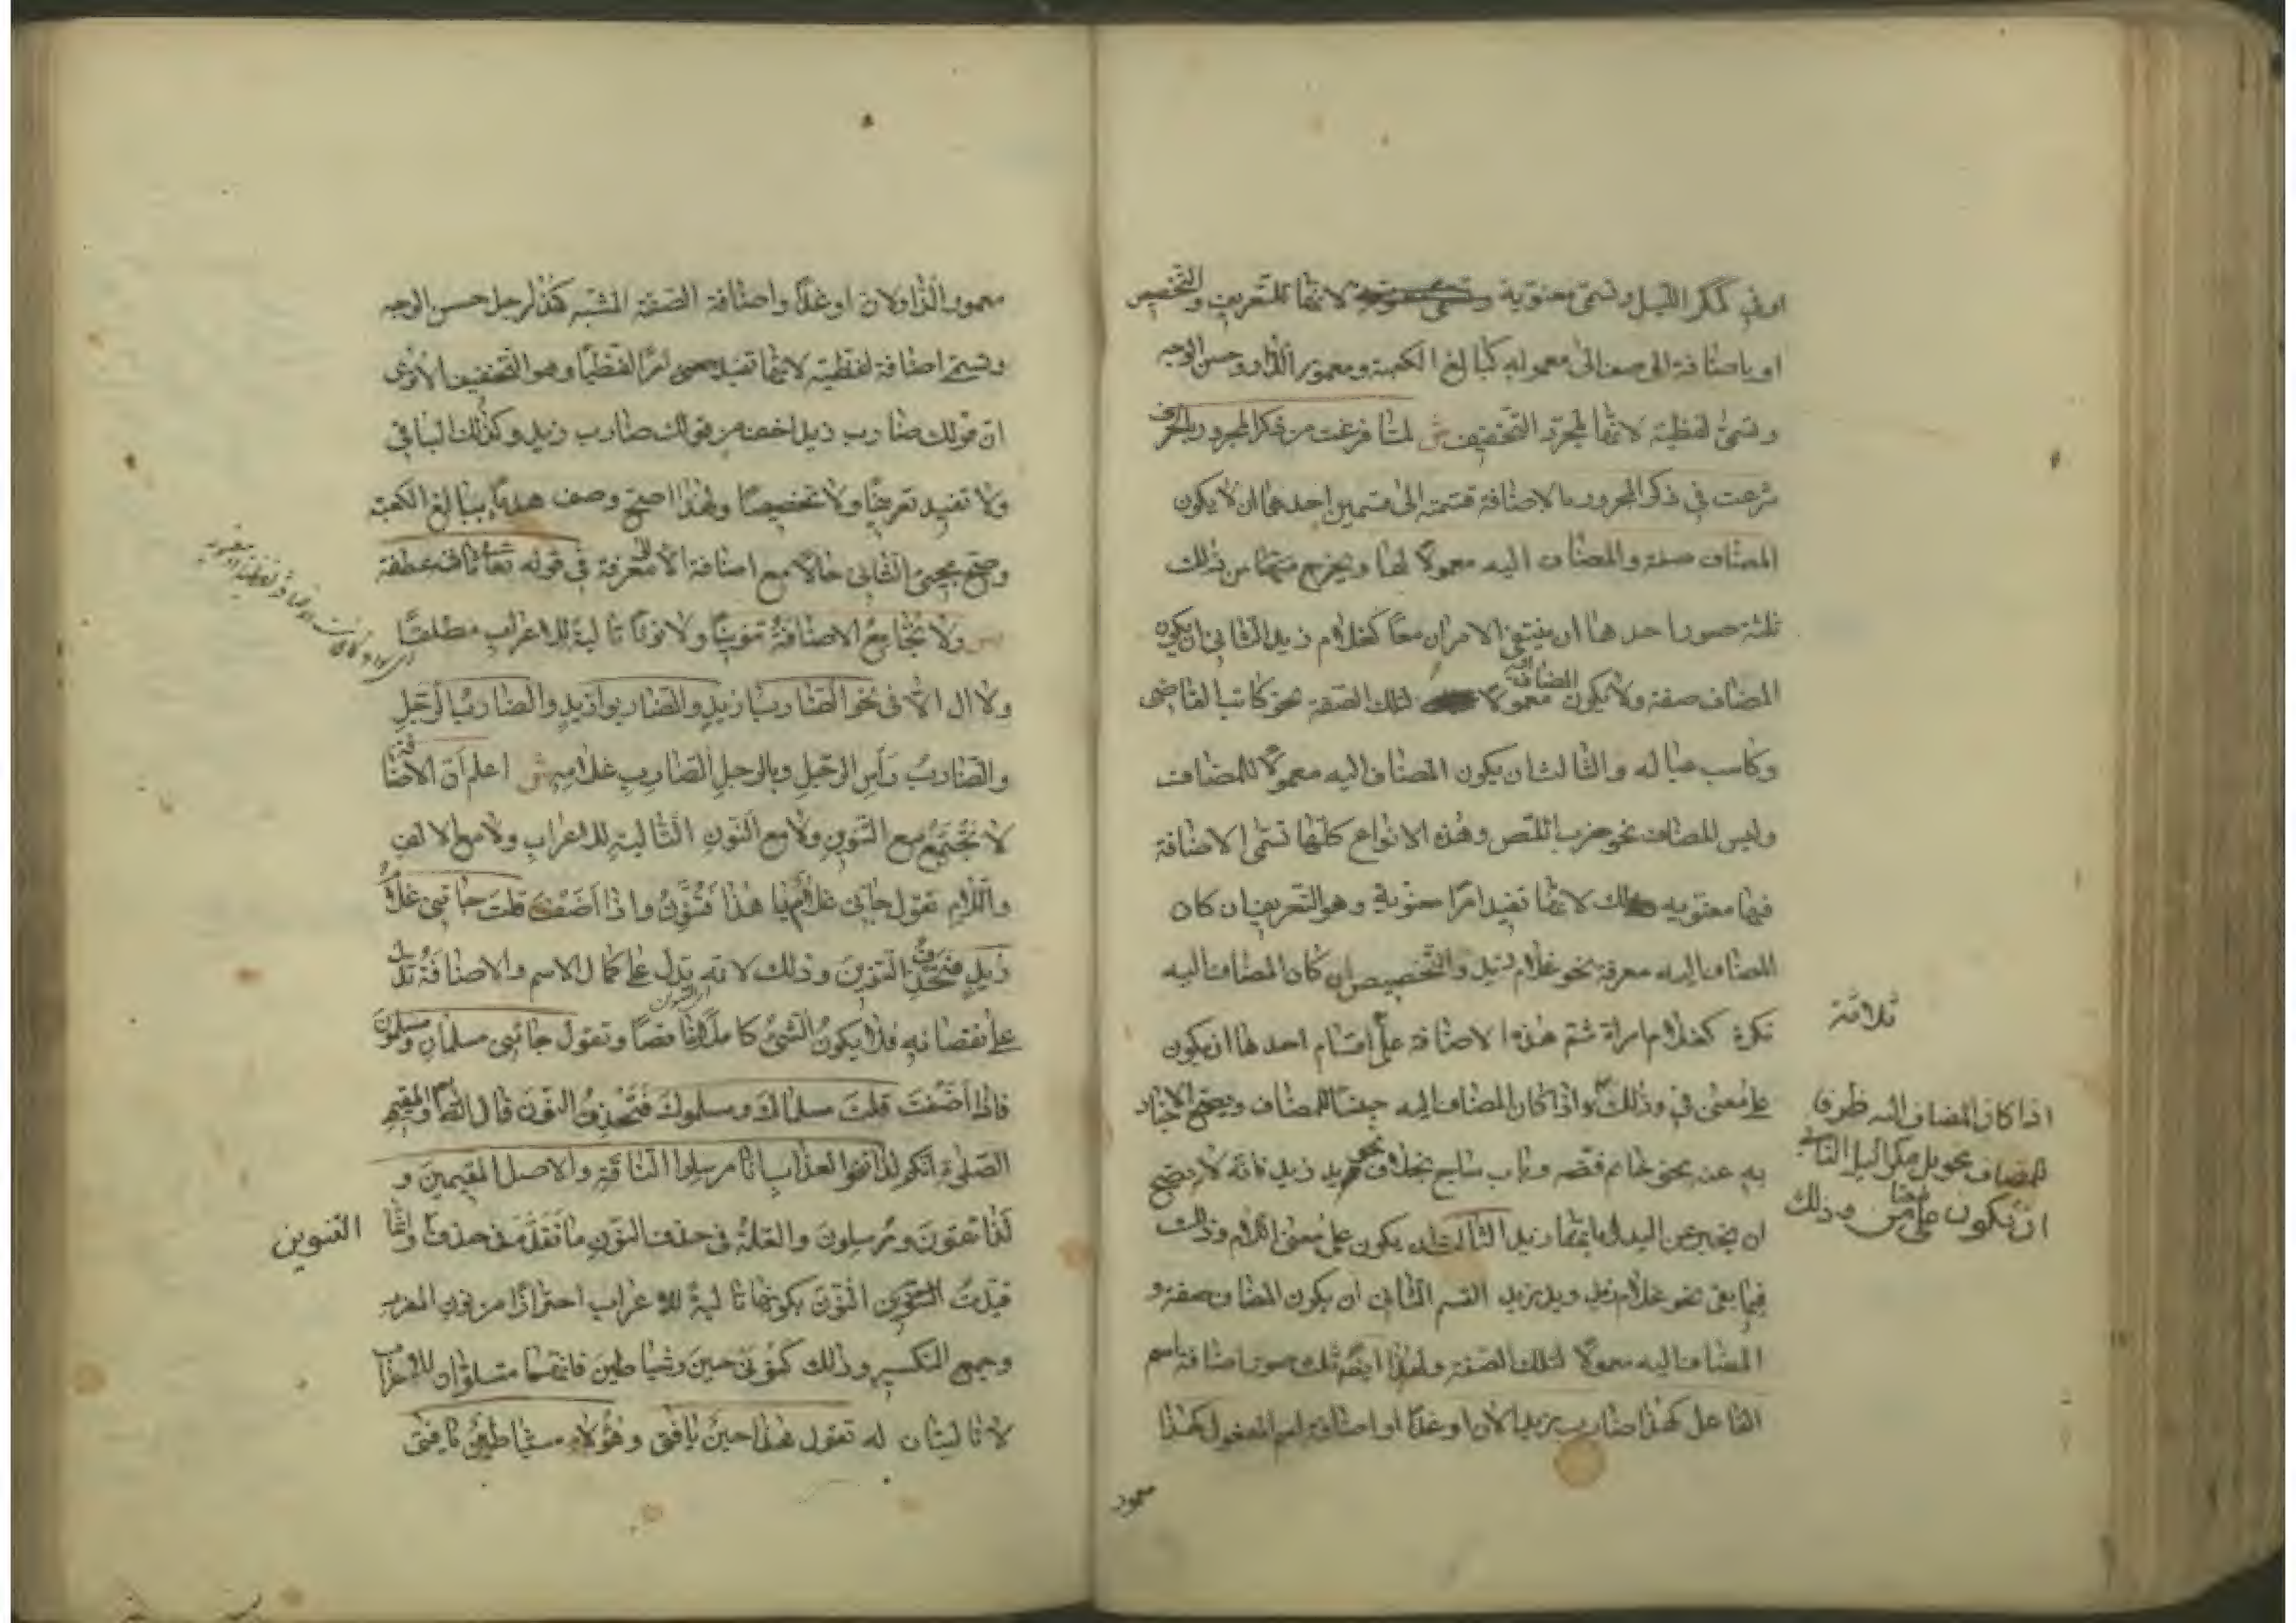 او في كمكر الليل وتسمى معنوية لانها للتعريف والتخصيص
او باضافة الى صفة الى معموله كبالغ الكعبة ومعمور الدار وحسن الوجه
وتسمى لفظية لانها لمجرد التخفيف ش لما فرغت من ذكر المجرور بالحرف
شرعت في ذكر المجرور بالاضافة قسمته الى قسمين احدهما ان لا يكون
المضاف صفة والمضاف اليه معمولا لها ويخرج من ذلك
ثلثة صور احدها ان ينتفي الامران معا كغلام زيد الثاني ان يكون
المضاف صفة ولا يكون المضاف اليه معمولا لتلك الصفة نحو كاتب القاضي
وكاسب عياله والثالث ان يكون المضاف اليه معمولا للمضاف
وليس المضاف نحو ضرب اللص وهذه الانواع كلها تسمى الاضافة
فيها معنوية لانها تفيد امرا معنوية وهو التعريف ان كان
المضاف اليه معرفة نحو غلام زيد والتخصيص ان كان المضاف اليه
نكرة كغلام امراة ثم هذه الاضافة على اقسام احدها ان يكون
على معنى في وذلك واذا كان المضاف اليه جنسا للمضاف ويصح الاخبار
به عنه نحو خاتم فضة وباب ساج بخلاف نحو يد زيد فانه لا يصح
ان يخبر عن اليد بانها زيد الثالث ان يكون على معنى اللام وذلك
فيما بقى نحو غلام زيد ويد زيد القسم الثاني ان يكون المضاف صفة و
المضاف اليه معمولا لتلك الصفة ولهذا ايضا ثلث صور اضافة اسم
الفاعل كهذا ضارب زيد الان او غدا او اضافة اسم المفعول كهذا
معمور
ثلاثة
اذا كان المضاف اليه ظرفا
للمضاف نحو بل مكر الليل الثاني
ان يكون على معنى من وذلك
معمور الدار الان او غدا واضافة الصفة المشبه كهذا رجل حسن الوجه
وتسمى اضافة لفظية لانها تفيد امرا لفظيا وهو التخفيف الا ترى
ان قولك ضارب زيد اخف من قولك ضارب زيد وكذلك الباقي
ولا تفيد تعريفا ولا تخصيصا ولهذا صح وصف هديا ببالغ الكعبة
وصح مجيء الثاني حالا مع اضافة الى المعرفة في قوله تعا ثاني عطفه
ص ولا تجامع الاضافة تنوينا ولا نونا تالية للاعراب مطلقا
ولا ال الا في نحو الضاربا زيد والضاربوا زيد والضارب الرجل
والضارب راس الرجل وبالرجل الضارب غلامه ش اعلم ان الاضافة
لا تجتمع مع التنوين ولا مع النون التالية للاعراب ولا مع الالف
واللام تقول جاءني غلام يا هذا فتنون واذا اضفت قلت جاءني غلام
زيد فتحذف التنوين وذلك لانه يدل على كمال الاسم والاضافة تدل
على نقصانه فلا يكون الشيء كاملا ناقصا وتقول جاءني مسلمان ومسلمون
فاذا اضفت قلت مسلماك ومسلموك فتحذف النون قال الله تعا والمقيمي
الصلوة انكم لذائقوا العذاب انا مرسلوا الناقة والاصل المقيمين و
لذائقون ومرسلون والعلة في حذف النون ما تقدم في حذف وانما
قيدت النون بكونها تالية للاعراب احترازا من نون المفرد
وجمع التكسير وذلك كنوني حين وشياطين فانهما متلوان للاعراب
لا تاليتان له تقول هذا حين يا فتى وهؤلاء شياطين يا فتى
التنوين